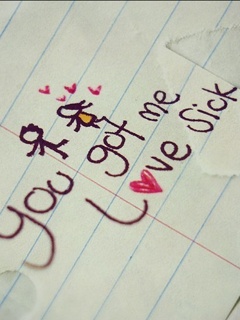 you got me
L❤ve Sick